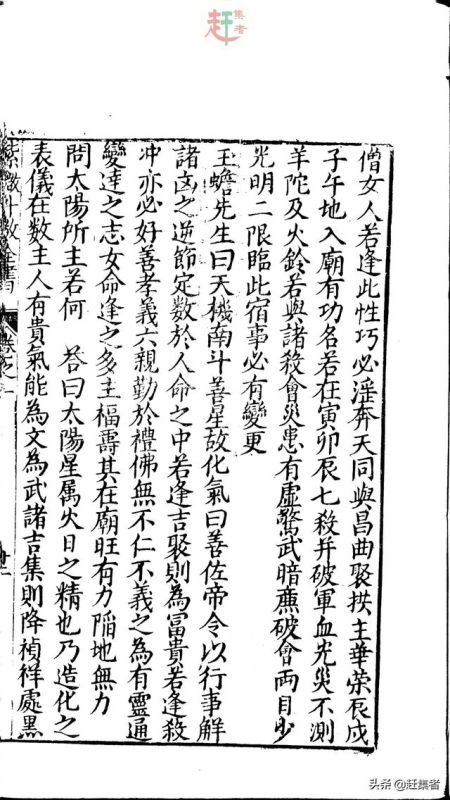 赶集者
僧女人若逢此性巧必淫奔天同與昌曲聚拱主華荣辰戌
子午地入廟有功名若在寅卯辰七殺并破軍血光災不測
羊陀及火鈴若與諸殺會災患有虛驚武暗廉破會兩目少
光明二限臨此宿事必有變更
玉蟾先生曰天機南斗善星故化氣曰善佐帝令以行事解
諸凶之逆節定數於人命之中若逢吉聚則為冨貴若逢殺
冲亦必好善孝義六親勤於禮佛無不仁不義之為有靈通
變達之志女命逢之多主福壽其在廟旺有力陷地無力
問太陽所主若何 答曰太陽星属火日之精也乃造化之
表儀在数主人有貴氣能為文為武諸吉集則降禎祥處黑
卷之一
头条@赶集者